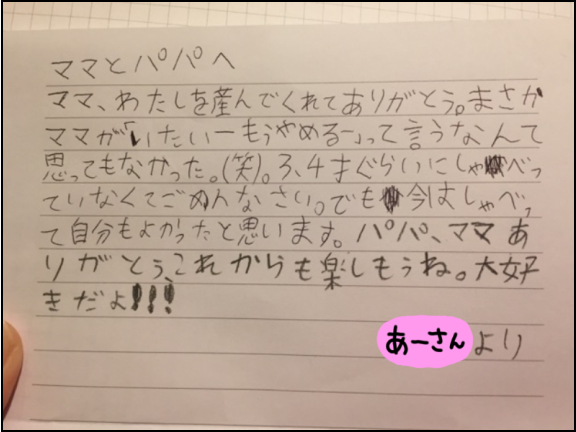 ママとパパへ
ママ、わたしを産んでくれてありがとう。まさか
ママが「いたいーもうやめるー」って言うなんて
思ってもなかった。(笑)。3、4才ぐらいにしゃべっ
ていなくてごめんなさい。でも今はしゃべっ
て自分もよかったと思います。パパ、ママあ
りがとう、これからも楽しもうね。大好
きだよ!!!
あーさんより